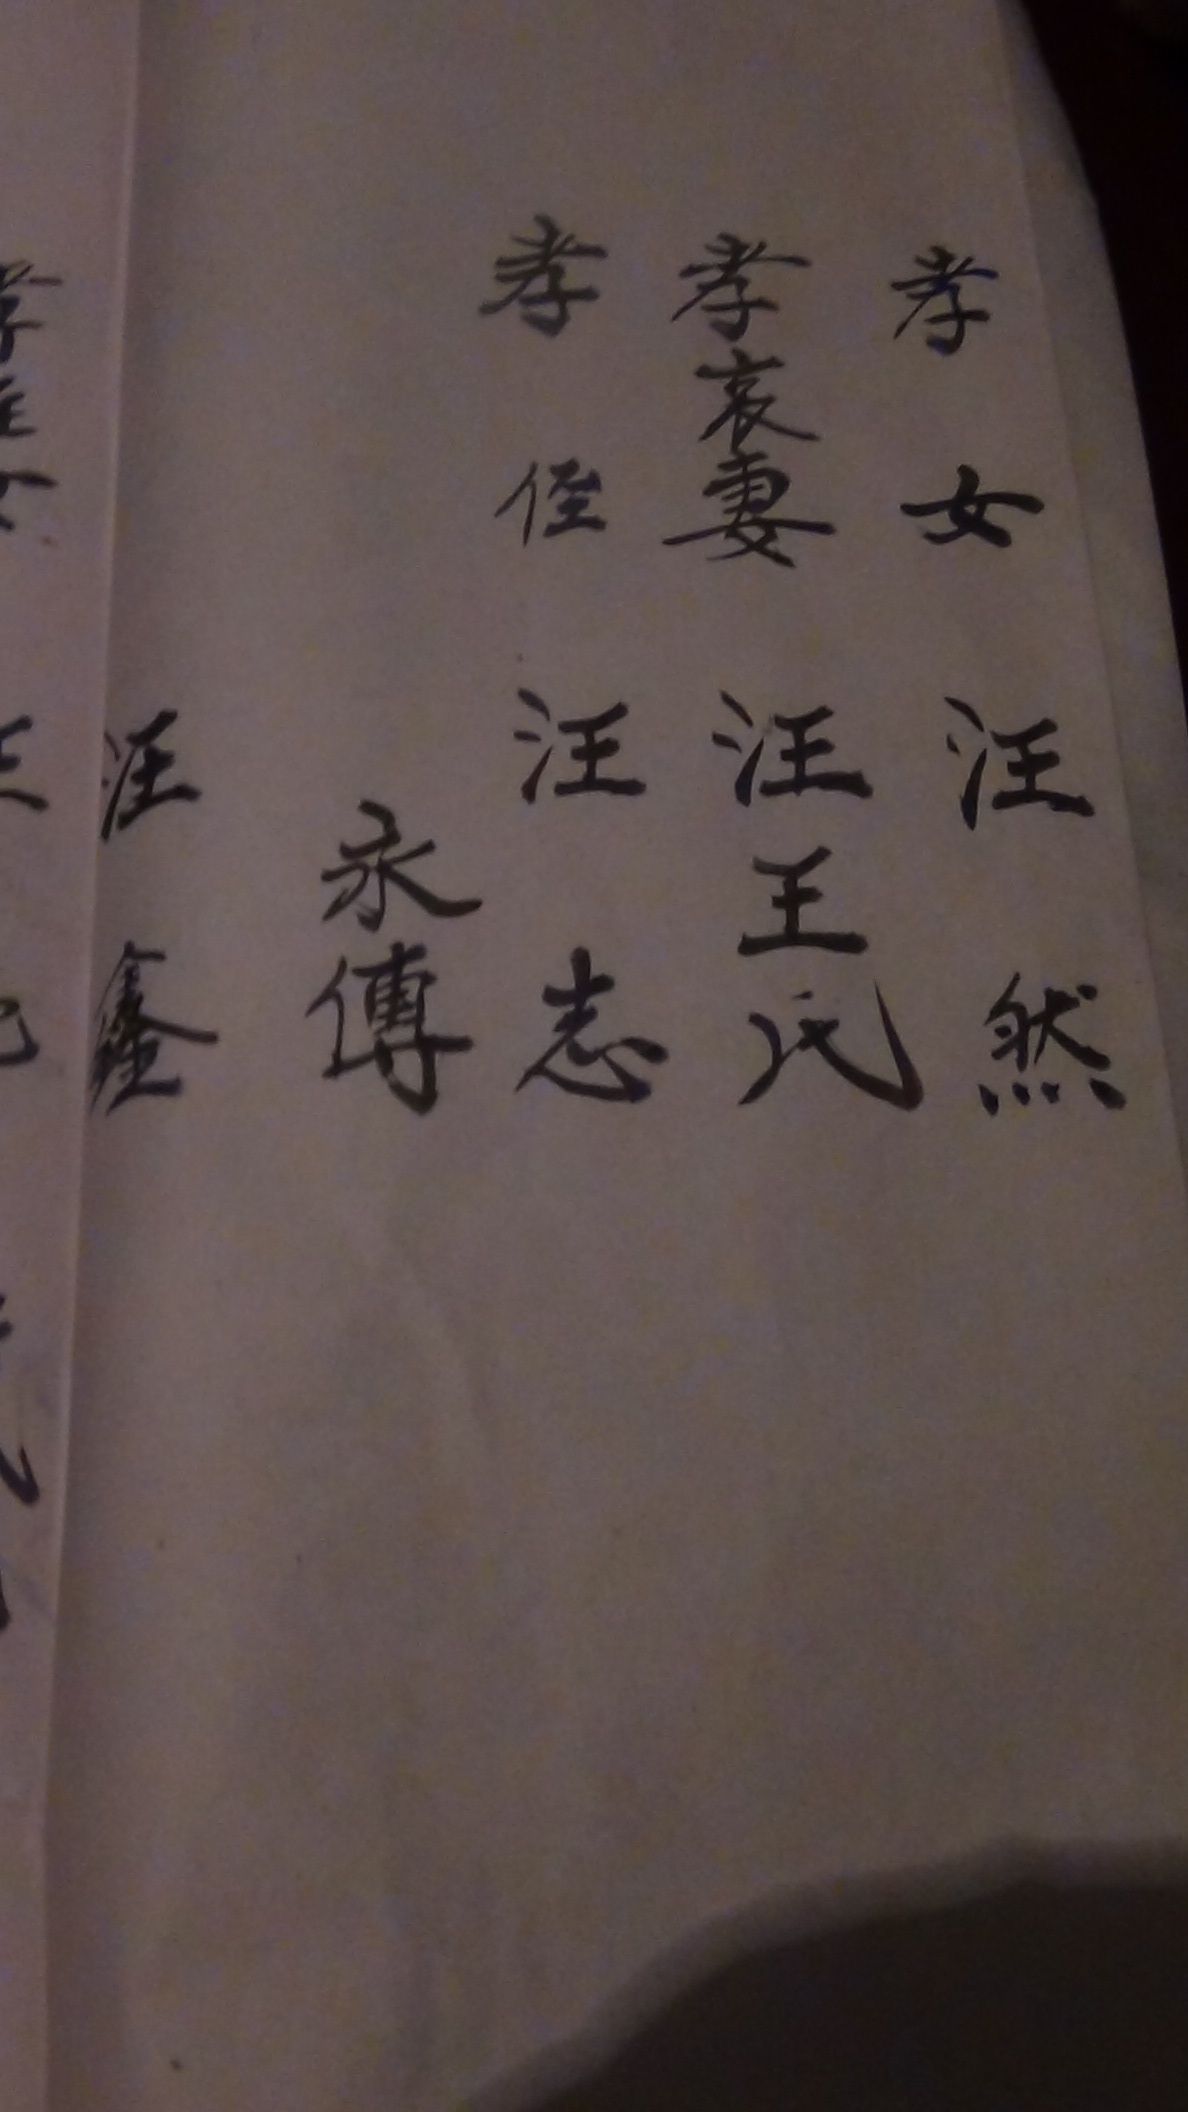 孝女汪然
孝哀妻汪王氏
孝侄汪志
永傳
汪鑫
孝侄女